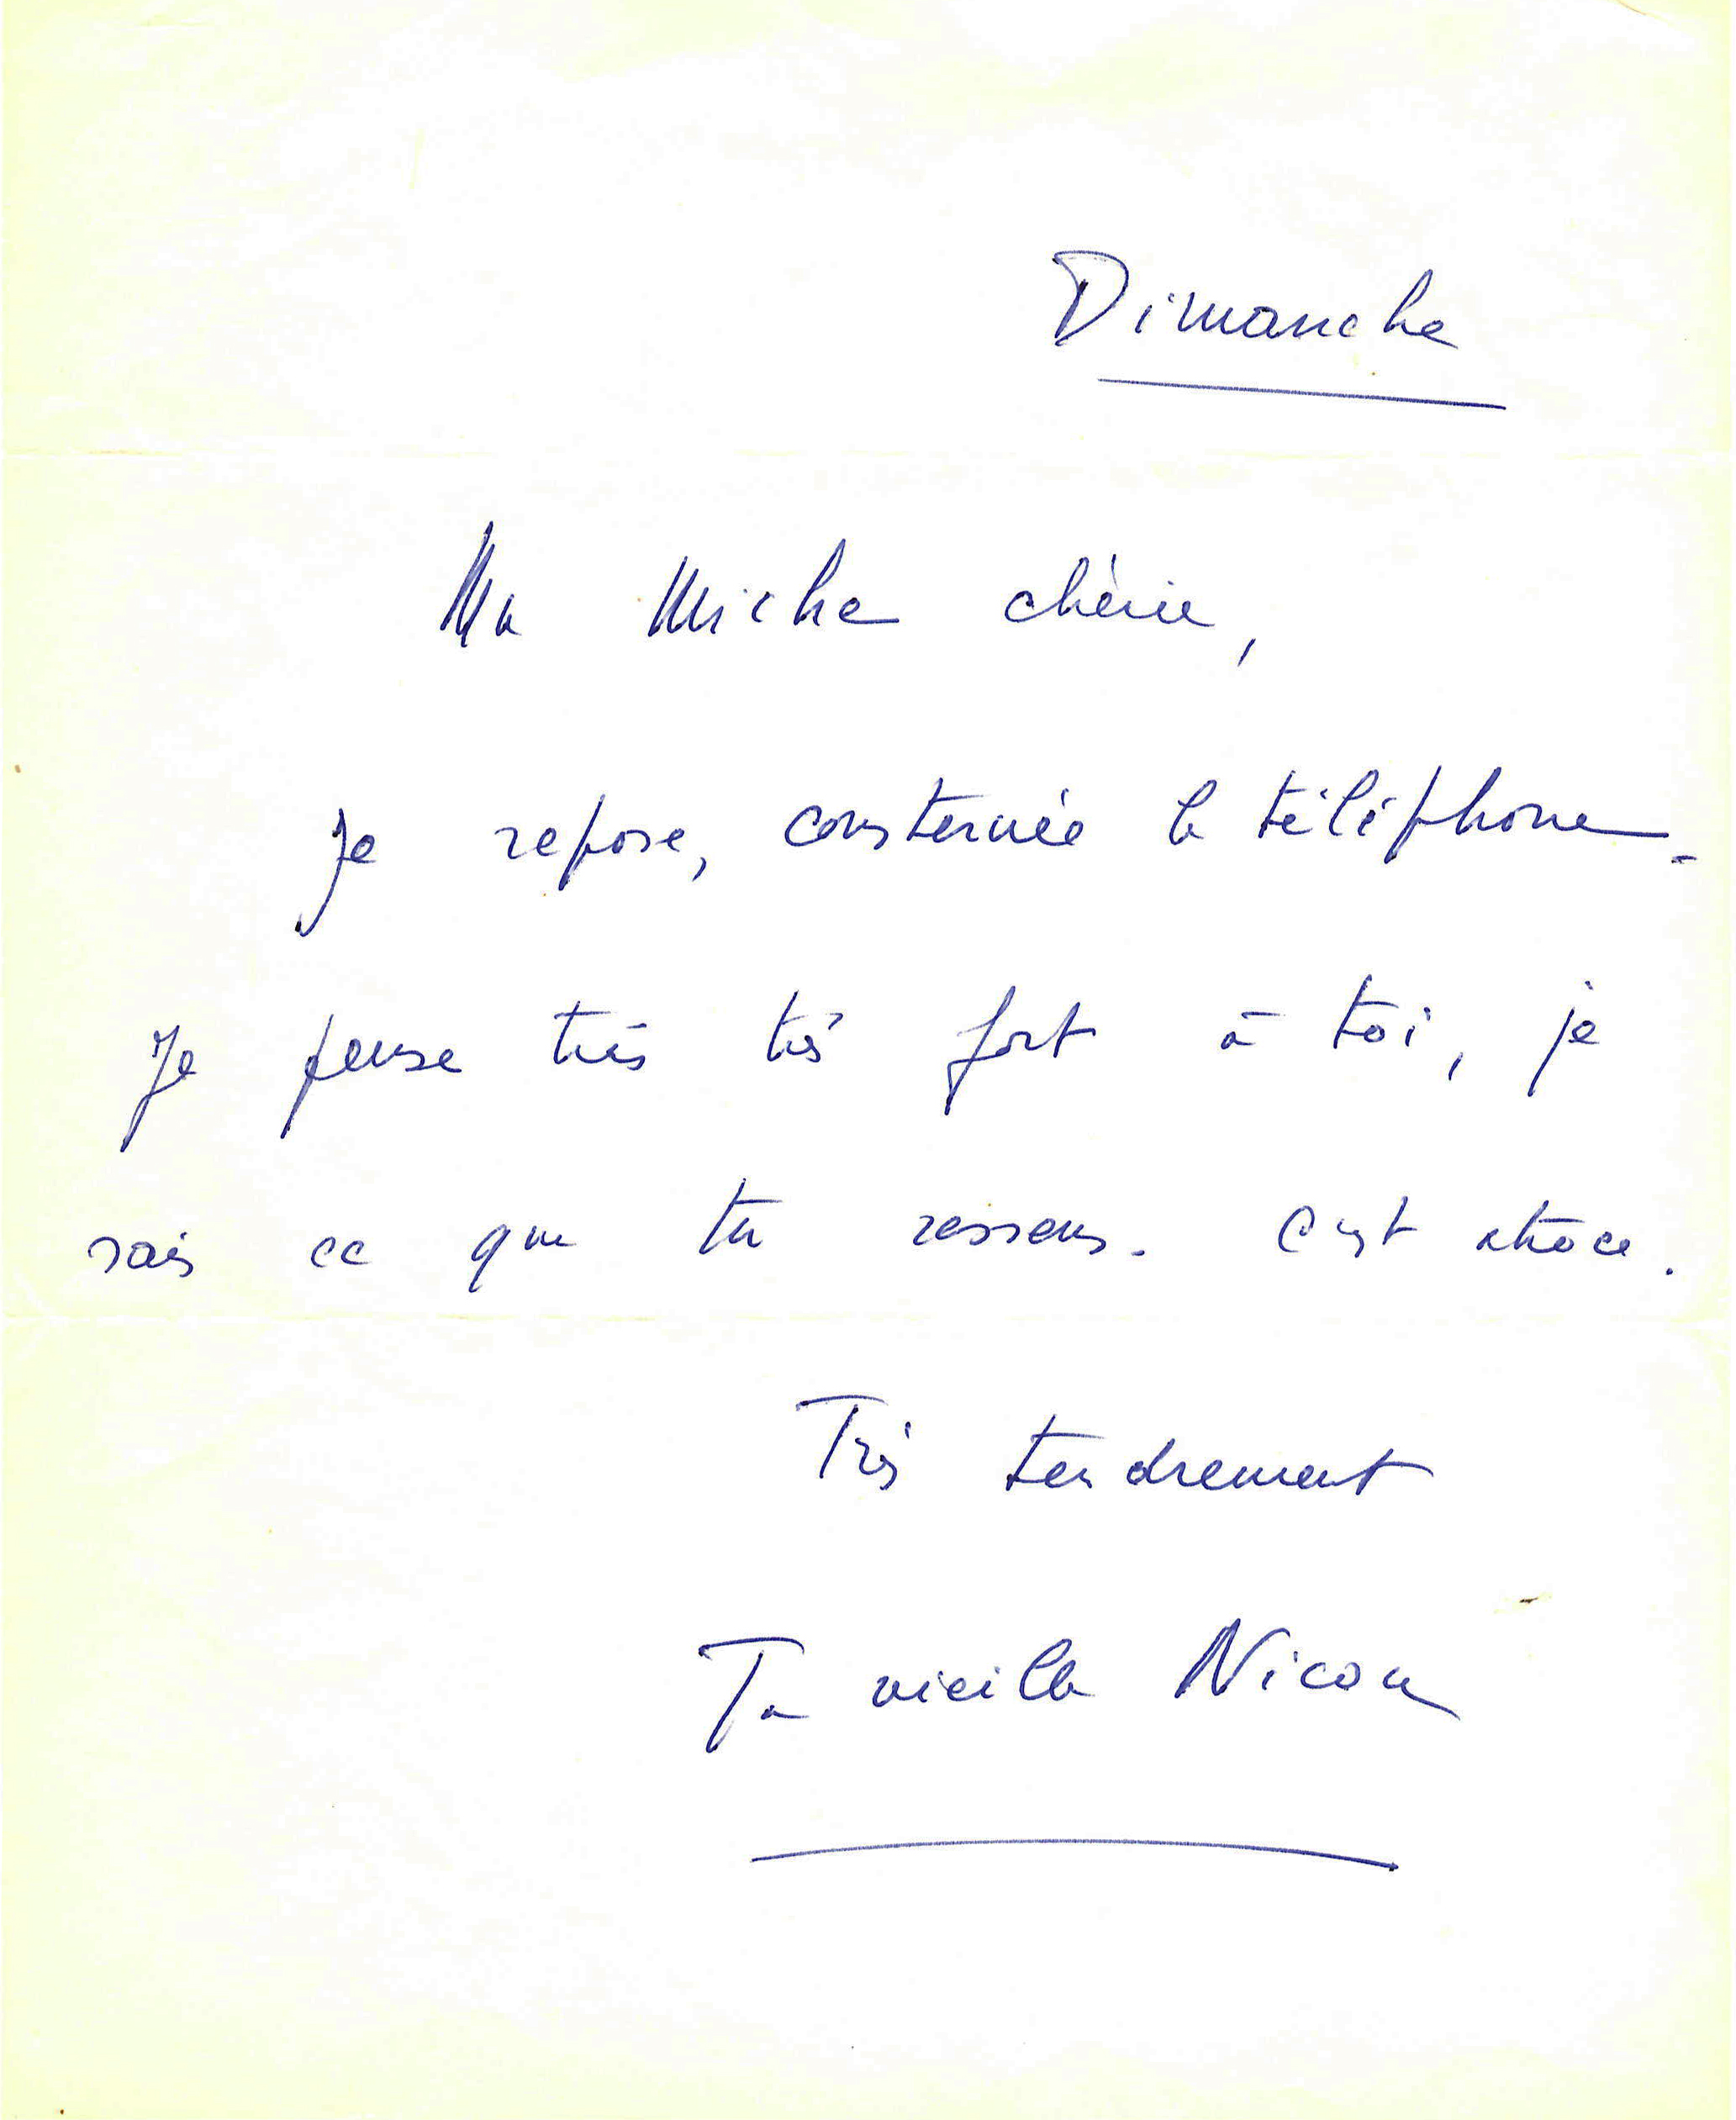 Dimanche
Ma Miche chérie,
Je repose, consternée le téléphone.
Je pense très très fort à toi, je
sais ce que tu ressens. C'est atroce.
Très tendrement
Ta vieille Nicou